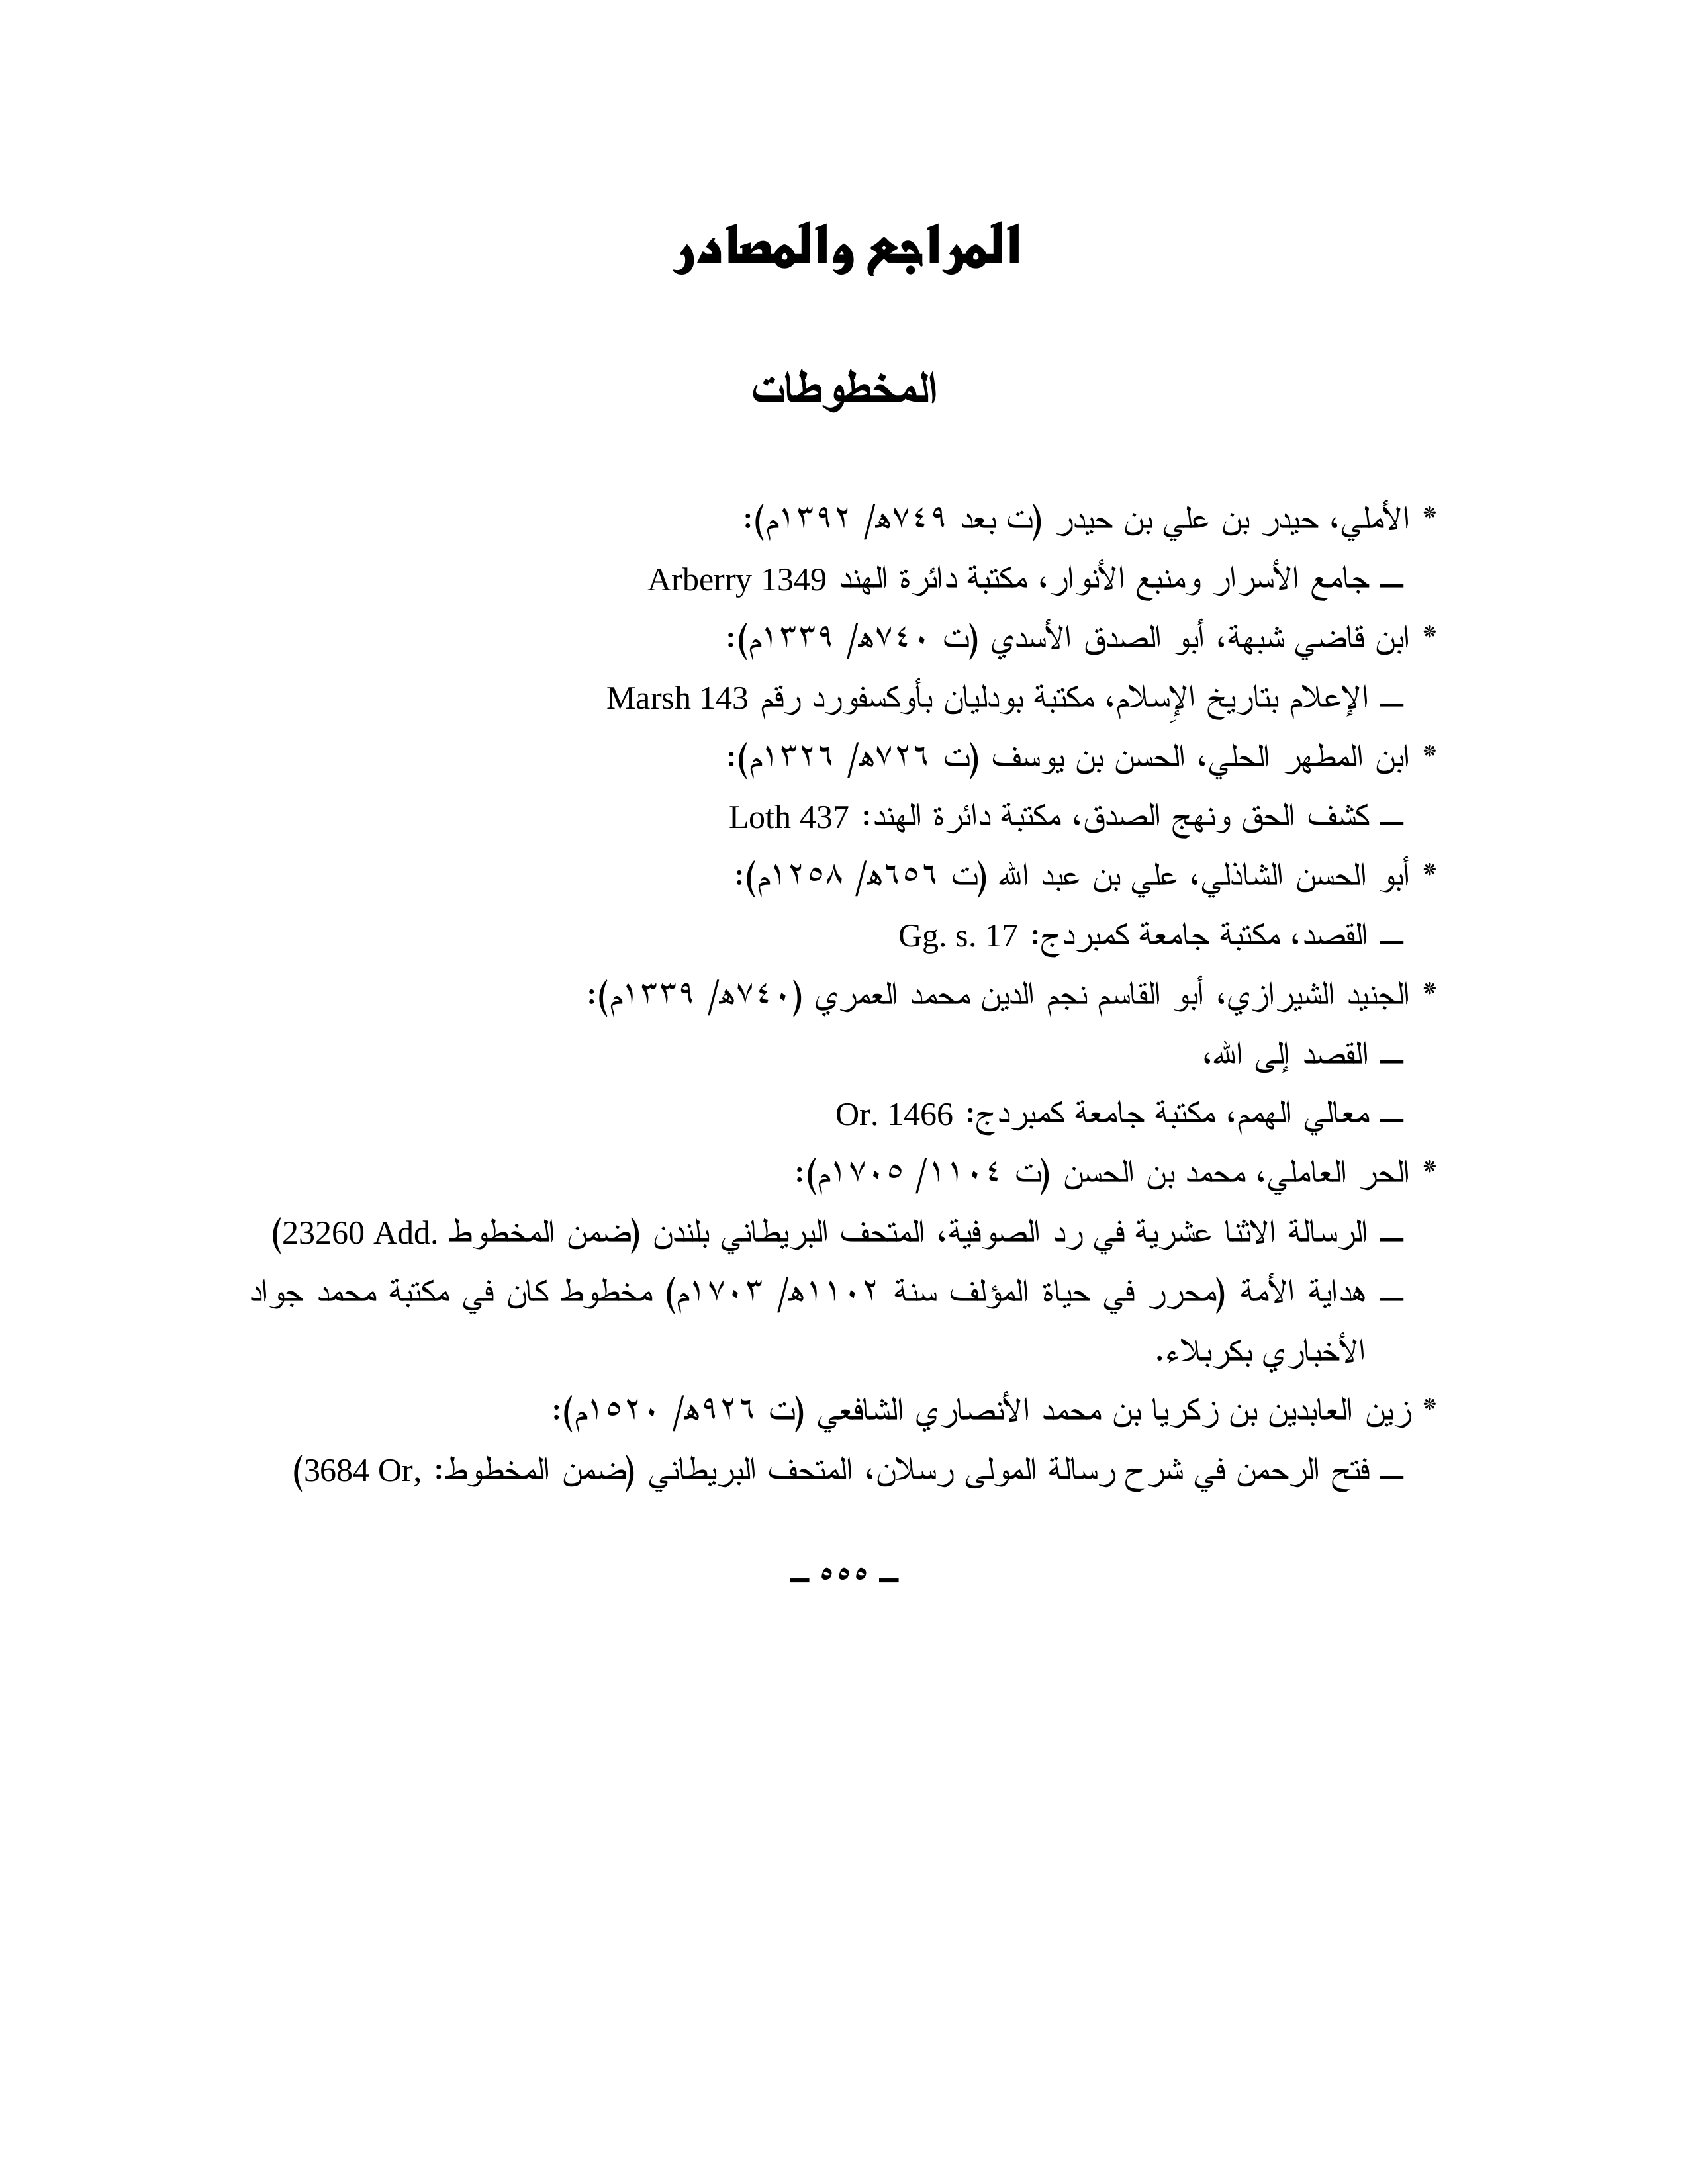 المراجع والمصادر
المخطوطات
* الأملي، حيدر بن علي بن حيدر (ت بعد ٧٤٩هـ/ ١٣٩٢م):
ــ جامع الأسرار ومنبع الأنوار، مكتبة دائرة الهند Arberry 1349
* ابن قاضي شبهة، أبو الصدق الأسدي (ت ٧٤٠هـ/ ١٣٣٩م):
ــ الإعلام بتاريخ الإِسلام، مكتبة بودليان بأوكسفورد رقم Marsh 143
* ابن المطهر الحلي، الحسن بن يوسف (ت ٧٢٦هـ/ ١٣٢٦م):
ــ كشف الحق ونهج الصدق، مكتبة دائرة الهند: Loth 437
* أبو الحسن الشاذلي، علي بن عبد الله (ت ٦٥٦هـ/ ١٢٥٨م):
ــ القصد، مكتبة جامعة كمبردج: Gg. s. 17
* الجنيد الشيرازي، أبو القاسم نجم الدين محمد العمري (٧٤٠هـ/ ١٣٣٩م):
ــ القصد إلى الله،
ــ معالي الهمم، مكتبة جامعة كمبردج: Or. 1466
* الحر العاملي، محمد بن الحسن (ت ١١٠٤/ ١٧٠٥م):
ــ الرسالة الاثنا عشرية في رد الصوفية، المتحف البريطاني بلندن (ضمن المخطوط 23260 Add.)
ــ هداية الأمة (محرر في حياة المؤلف سنة ١١٠٢هـ/ ١٧٠٣م) مخطوط كان في مكتبة محمد جواد
الأخباري بكربلاء.
* زين العابدين بن زكريا بن محمد الأنصاري الشافعي (ت ٩٢٦هـ/ ١٥٢٠م):
ــ فتح الرحمن في شرح رسالة المولى رسلان، المتحف البريطاني (ضمن المخطوط: 3684 Or,)
ــ ٥٥٥ ــ